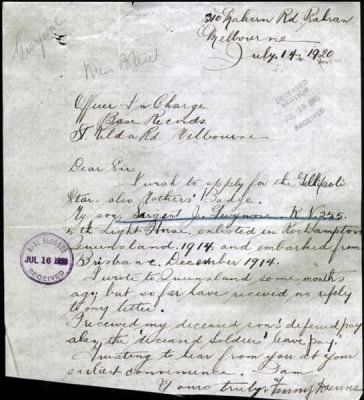 210 Malvern Rd Prahran
Melbourne
July. 14. 1920
DECEASED
SECTION
RECEIVED
Officer In Charge
Base Records
St Kilda Rd Melbourne
Dear Sir
I wish to apply for the Gallipoli
Star. also Mothers' Badge.
My son Sargent J. Gwynne R N. 355
5th Light Horse, enlisted in Rockhampton
Queensland. 1914. and embarked from
Brisbane. December 1914.
I wrote to Queensland some months
ago, but so far have received no reply
to my letter.
I received my deceased son's deferred pay
also, the deceased soldiers' leave pay.
Trusting to hear from you at your
earliest convenience. I am
Yours truly Fanny
BASE RECORDS
JUL 16 1920
RECEIVED